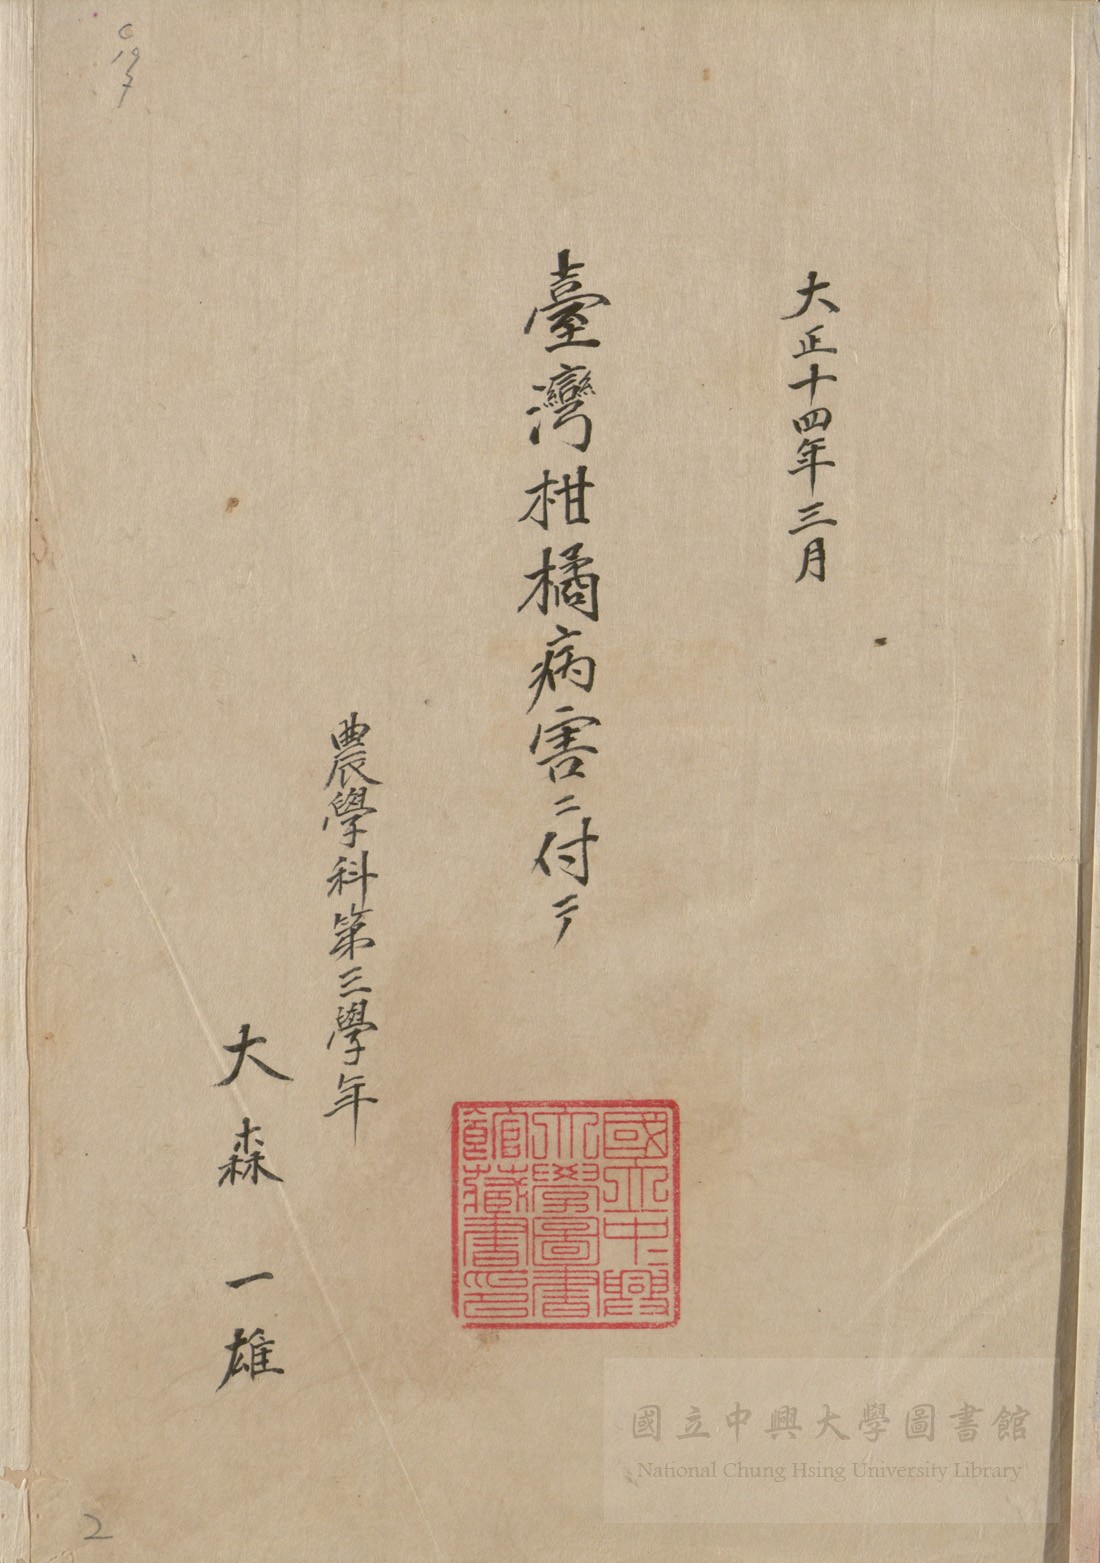 大正十四年三月
臺灣柑橘病害ニ付テ
農學科第三學年
大森一雄
國立中興
大學圖書
館藏書印
國立中興大學圖書館
National Chung Hsing University Library
2